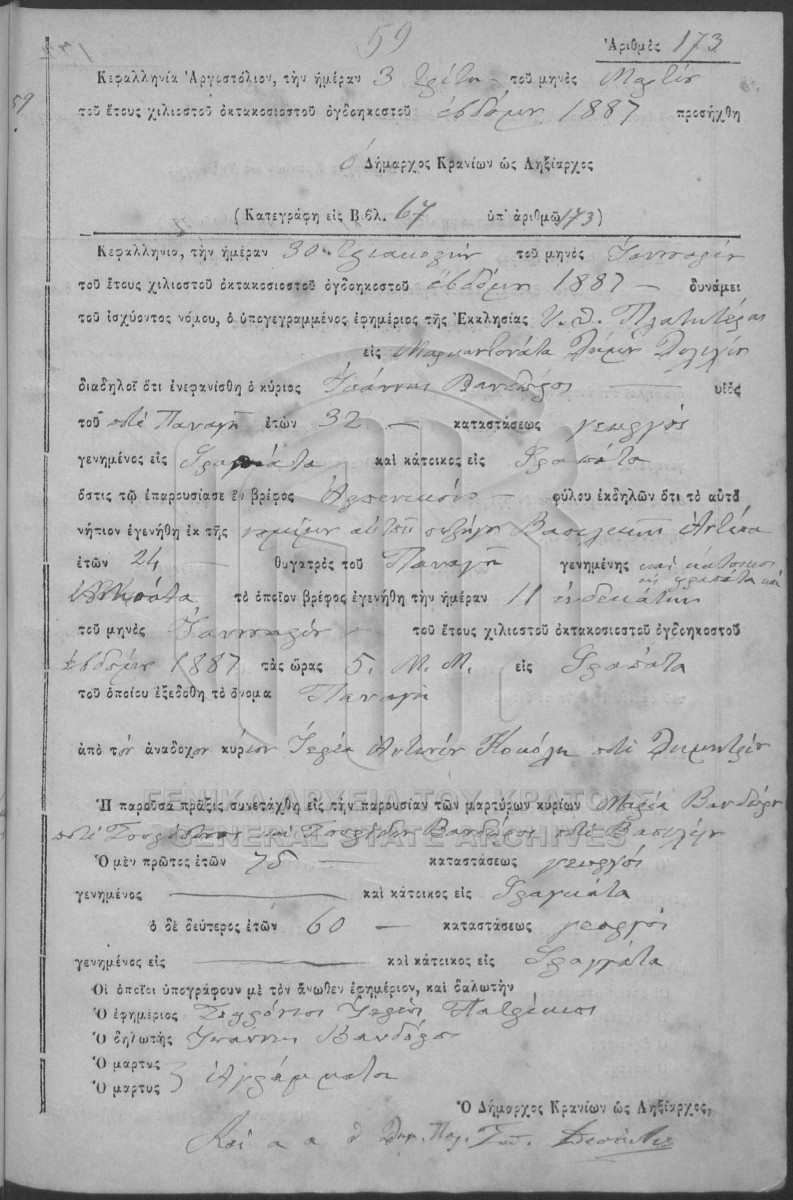 59
Ἀριθμὸς 173
Κεφαλληνία Ἀργοστόλιον, τὴν ἡμέραν 3 Τρίτη - τοῦ μηνὸς Μαρτίου
59
τοῦ ἔτους χιλιοστοῦ ὀκτακοσιοστοῦ ὀγδοηκοστοῦ ἑβδόμου 1887 προσήχθη
ὁ Δήμαρχος Κρανίων ὡς Ληξίαρχος
(Κατεγράφη εἰς Βιβλ. 67 ὑπ' ἀριθμὸ 173)
Κεφαλληνία, τὴν ἡμέραν 30 τριακοστὴν τοῦ μηνὸς Ἰαννουαρίου
τοῦ ἔτους χιλιοστοῦ ὀκτακοσιοστοῦ ὀγδοηκοστοῦ ἑβδόμου 1887 - δυνάμει
τοῦ ἰσχύοντος νόμου, ὁ ὑπογεγραμμένος ἐφημέριος τῆς Ἐκκλησίας Πλατυτέρας
εἰς Μαρκαντονάτα
διαδηλοῖ ὅτι ἐνεφανίσθη ὁ κύριος Ἰωάννης Βανδῶρος υἱὸς
τοῦ ποτὲ Παναγῆ ἐτῶν 32 - καταστάσεως γεωργὸς
γενημένος εἰς Φραγκάτα καὶ κάτοικος εἰς Φραγκάτα
ὅστις τῷ ἐπαρουσίασε ἓν βρέφος Ἀρσενικοῦ - φύλου ἐκδηλῶν ὅτι τὸ αὐτὸ
νήπιον ἐγενήθη ἐκ τῆς νομίμου αὐτοῦ συζύγου Βασιλικῆς
ἐτῶν 24 - θυγατρὸς τοῦ Παναγῆ γενημένης καὶ κάτοικος
εἰς Φραγκάτα
τὸ ὁποῖον βρέφος ἐγενήθη τὴν ἡμέραν 11 ἑνδεκάτην
τοῦ μηνὸς Ἰαννουαρίου - τοῦ ἔτους χιλιοστοῦ ὀκτακοσιοστοῦ ὀγδοηκοστοῦ
ἑβδόμου 1887 τὰς ὥρας 5. Μ. Μ. εἰς Φραγκάτα
τοῦ ὁποίου ἐξεδόθη τὸ ὄνομα Παναγῆ
ἀπὸ τὸν ἀνάδοχον κύριον Ἱερέα Ἀντώνιον ποτὲ Δημητρίου
ΓΕΝΙΚΑ ΑΡΧΕΙΑ ΤΟΥ ΚΡΑΤΟΥΣ
Ἡ παροῦσα πρᾶξις συνετάχθη εἰς τὴν παρουσίαν τῶν μαρτύρων κυρίων Βανδώρου
GENERAL STATE ARCHIVES
ποτὲ καὶ Σπυρίδων Βανδῶρος ποτὲ Βασιλείου
Ὁ μὲν πρῶτος ἐτῶν 75 - καταστάσεως γεωργὸς
γενημένος καὶ κάτοικος εἰς Φραγκάτα
ὁ δὲ δεύτερος ἐτῶν 60 - καταστάσεως γεωργὸς
γενημένος εἰς καὶ κάτοικος εἰς Φραγκάτα
Οἱ ὁποῖοι ὑπογράφουν μὲ τὸν ἄνωθεν ἐφημέριον, καὶ δηλωτὴν
Ὁ ἐφημέριος
Ὁ δηλωτὴς Ἰωάννης Βανδῶρος
Ὁ μάρτυς
Ὁ μάρτυς } Ἀγράμματοι
Ὁ Δήμαρχος Κρανίων ὡς Ληξίαρχος,